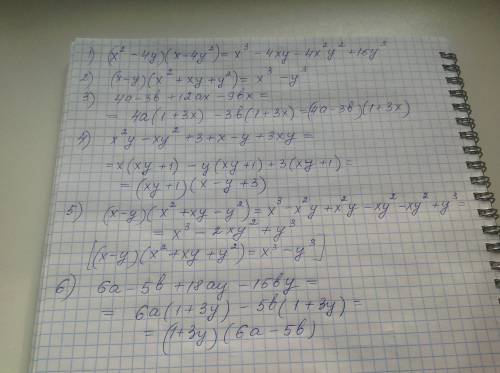 1) (x² - 4y)(x - 4y²) = x³ - 4xy - 4x²y² + 16y³
2) (x-y)(x² + xy + y²) = x³ - y³
3) 4a - 3b + 12ax - 9bx =
= 4a(1+3x) - 3b(1+3x) = (4a-3b)(1+3x)
4) x²y - xy² + 3 + x - y + 3xy =
= x(xy+1) - y(xy+1) + 3(xy+1) =
= (xy+1)(x - y + 3)
5) (x-y)(x² + xy - y²) = x³ - x²y + x²y - xy² - xy² + y³ =
= x³ - 2xy² + y³
[(x-y)(x² + xy + y²) = x³ - y³]
6) 6a - 5b + 18ay - 15by =
= 6a(1+3y) - 5b(1+3y) =
= (1+3y)(6a - 5b)